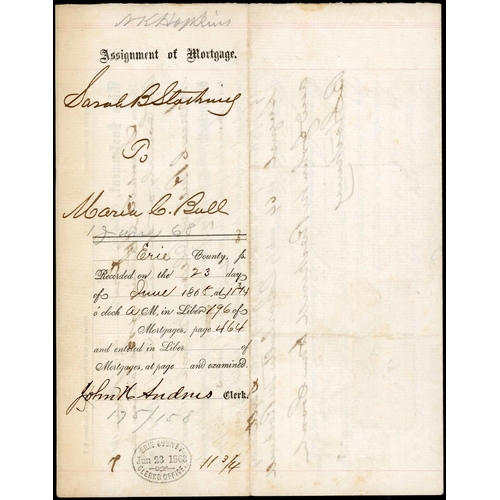 N K Hopkins
Assignment of Mortgage.
Sarah B
To
Maria C. Bull
Erie County, ss.
Recorded on the 23 day
of June 1868, at 11 3/4
o'clock A M, in Liber 196 of
Mortgages, page 464
and entered in Liber of
Mortgages, at page and examined.
John H Andrus Clerk.
175/158
ERIE COUNTY
Jun 23 1868
CLERKS OFFICE
11 3/4